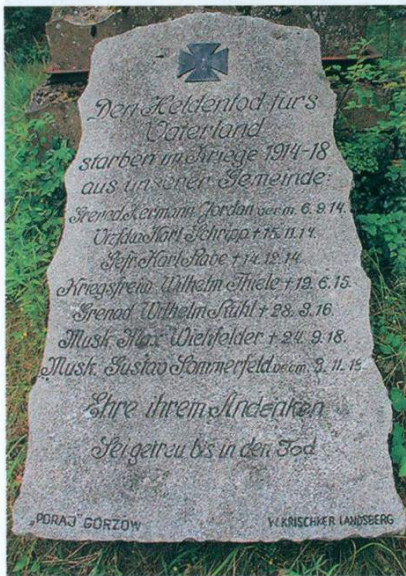 Den Heldentod für's
Vaterland
starben im Kriege 1914-18
aus unserer Gemeinde:
Grenad. Hermann Jordan verm. 6.9.14.
Karl Schripp † 15.11.14.
Gefr. Karl Rabe † 14.12.14.
Kriegsfreiw. Wilhelm Thiele † 19.6.15.
Grenad. Wilhelm Kühl † 28.3.16.
Musk. Max Wichfelder † 24.9.18.
Musk. Gustav Sommerfeld verm. 3.11.18.
Ehre ihrem Andenken
Sei getreu bis in den Tod
„PORAJ” GORZÓW
W. KRISCHKER LANDSBERG